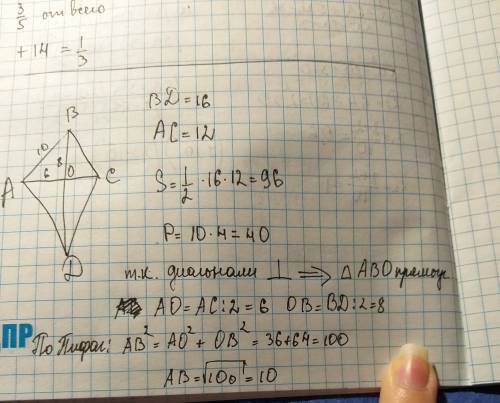 3/5 от всего
+ 14 = 1/3
B
10
8
6
O
A
C
D
BD = 16
AC = 12
S = 1/2 · 16 · 12 = 96
P = 10 · 4 = 40
т.к. диагонали ⊥ ⟹ △ ABO прямоуг.
AO = AC : 2 = 6 OB = BD : 2 = 8
ПР
По Пифаг: AB² = AO² + OB² = 36 + 64 = 100
AB = √100 = 10